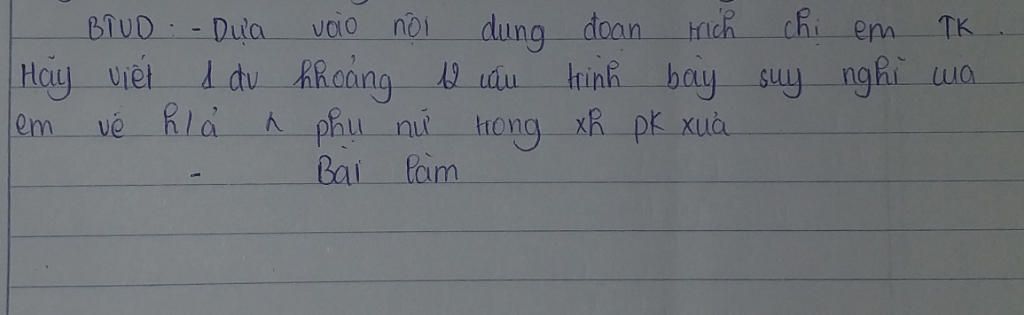 BTVD: - Dựa vào nội dung đoạn trích chị em TK.
Hãy viết 1 đv khoảng 12 câu trình bày suy nghĩ của
em về h/ả n phụ nữ trong xh pk xưa
- Bài làm